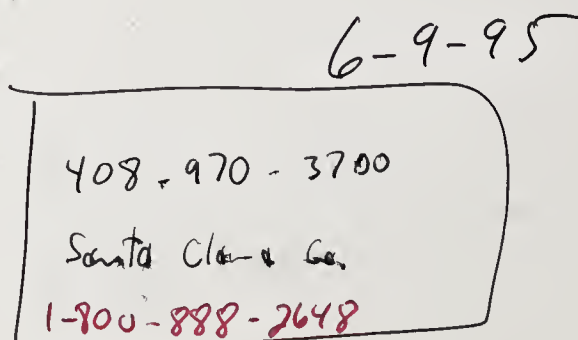 6-9-95
408.970-3700
Santa Clara Co.
1-800-888-2648